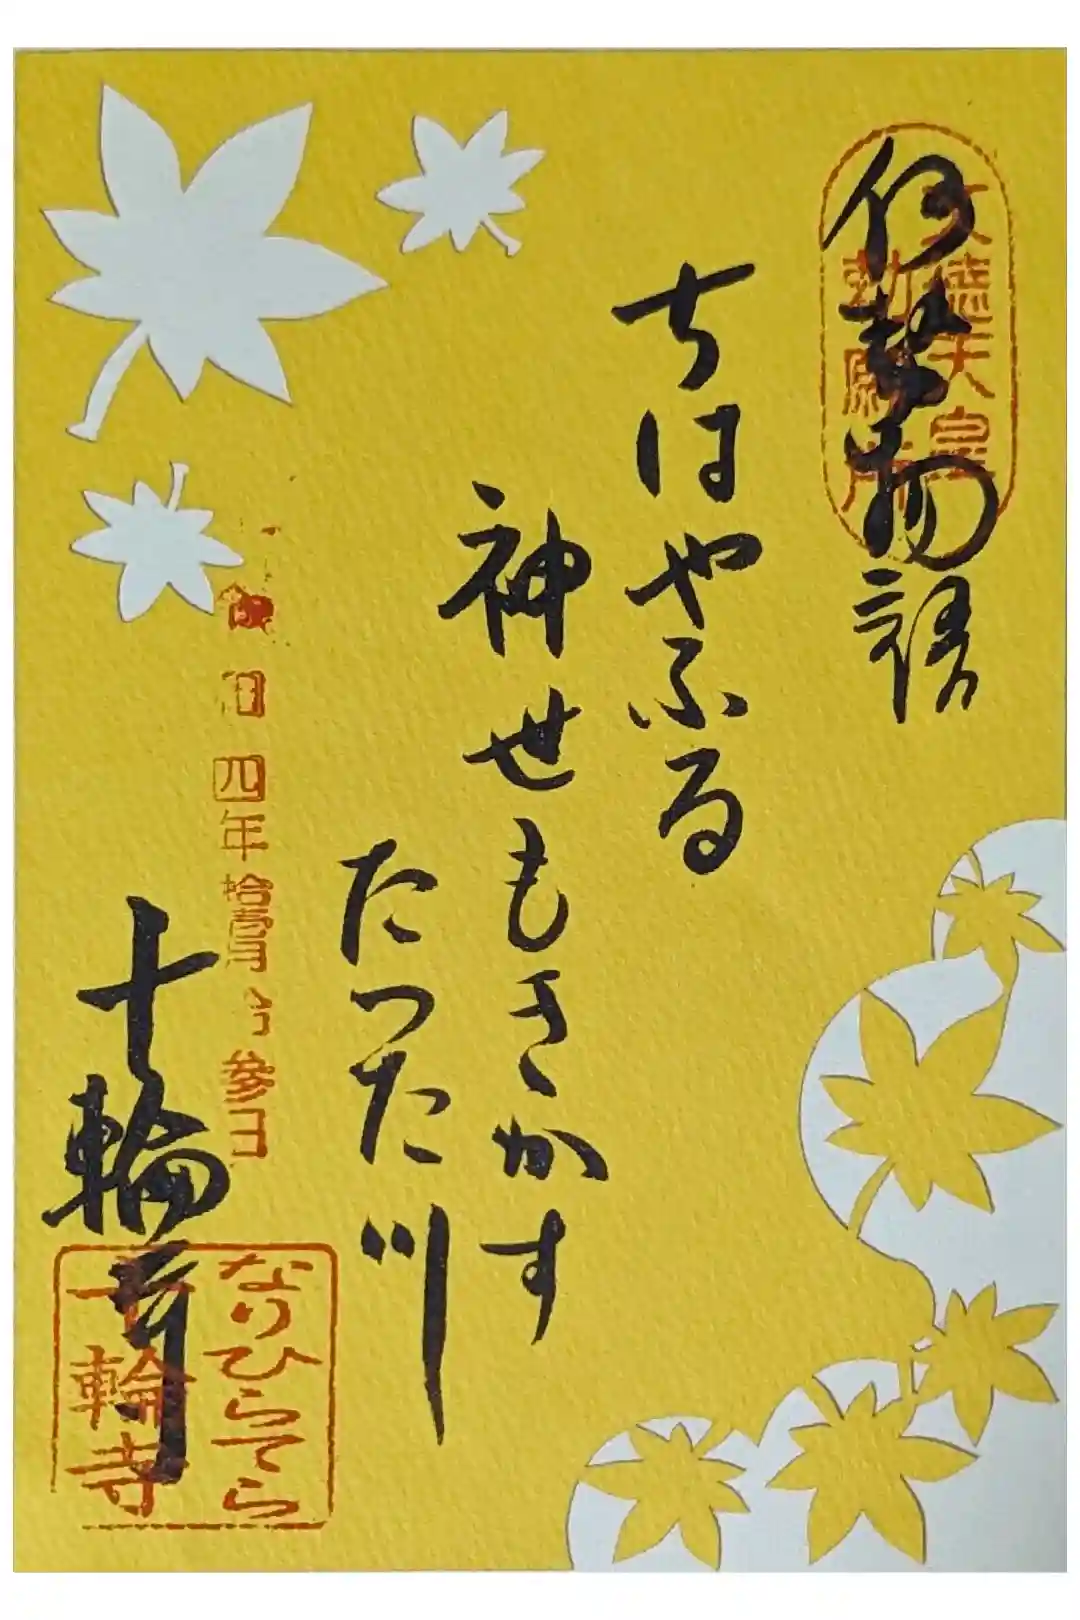 伊勢物語
文徳天皇
勅願所
ちはやふる
神世もきかす
たつた川
四年拾壱月 参日
十輪寺
なりひらてら
十輪寺